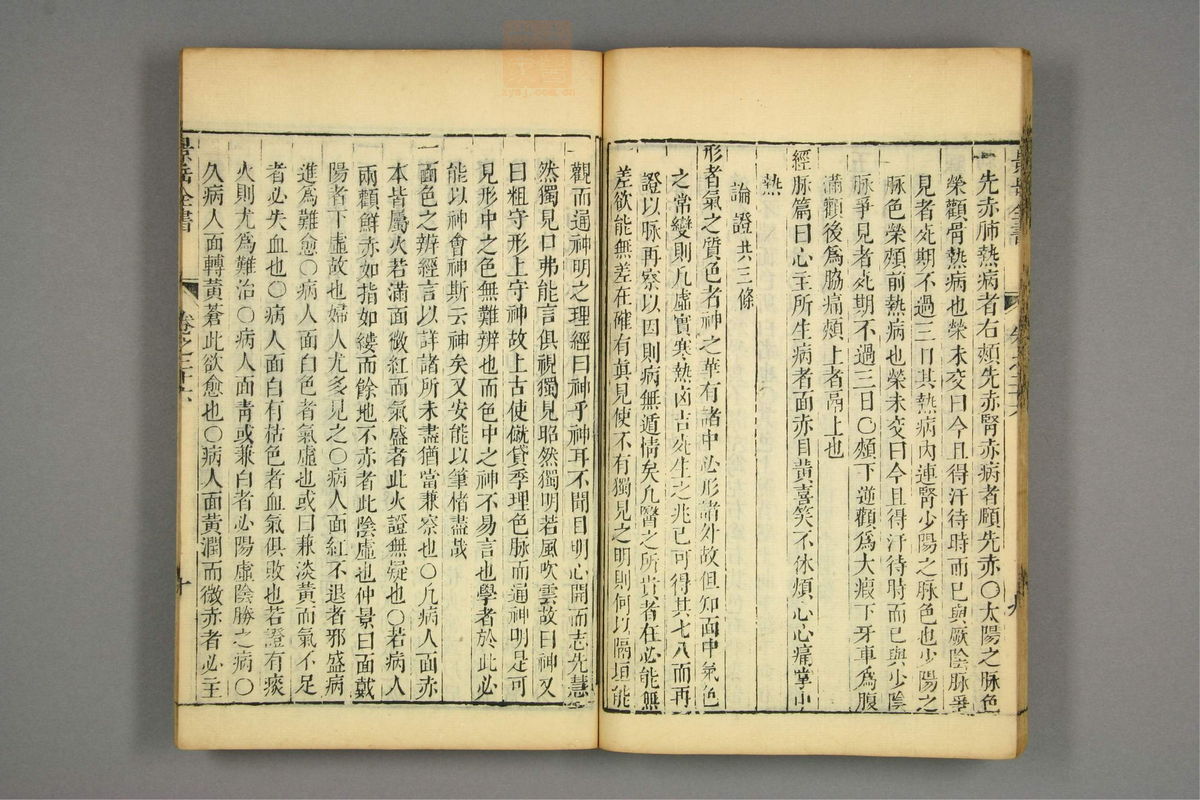 先赤肺熱病者右頰先赤腎赤病者頤先赤〇太陽之脉色
榮顴骨熱病也榮未交曰今且得汗待時而已與厥陰脉爭
見者死期不過三日其熱病內連腎少陽之脉色也少陽之
脉色榮頰前熱病也榮未交曰今且得汗待時而已與少陰
脉爭見者死期不過三日〇頰下逆顴爲大瘕下牙車爲腹
滿顴後爲脇痛頰上者鬲上也
經脉篇曰心主所生病者面赤目黃喜笑不休煩心心痛掌中
熱
論證共三條
形者氣之質色者神之華有諸中必形諸外故但知面中氣色
之常變則凡虛實寒熱凶吉死生之兆已可得其七八而再
證以脉再察以因則病無遁情矣凡醫之所貴者在必能無
差欲能無差在確有眞見使不有獨見之明則何以隔垣能
觀而通神明之理經曰神乎神耳不聞目明心開而志先慧
然獨見口弗能言俱視獨見昭然獨明若風吹雲故曰神又
曰粗守形上守神故上古使僦貸季理色脉而通神明是可
見形中之色無難辨也而色中之神不易言也學者於此必
能以神會神斯云神矣又安能以筆楮盡哉
一面色之辨經言以詳諸所未盡猶當兼察也〇凡病人面赤
本皆屬火若滿面微紅而氣盛者此火證無疑也〇若病人
兩顴鮮赤如指如縷而餘地不赤者此陰虛也仲景曰面戴
陽者下虛故也婦人尤多見之〇病人面紅不退者邪盛病
進爲難愈〇病人面白色者氣虛也或曰兼淡黃而氣不足
者必失血也〇病人面白有枯色者血氣俱敗也若證有痰
火則尤爲難治〇病人面青或兼白者必陽虛陰勝之病〇
久病人面轉黃蒼此欲愈也〇病人面黃潤而微赤者必主
景岳全書
卷之二十六
十
景岳全書
卷之二十六
九